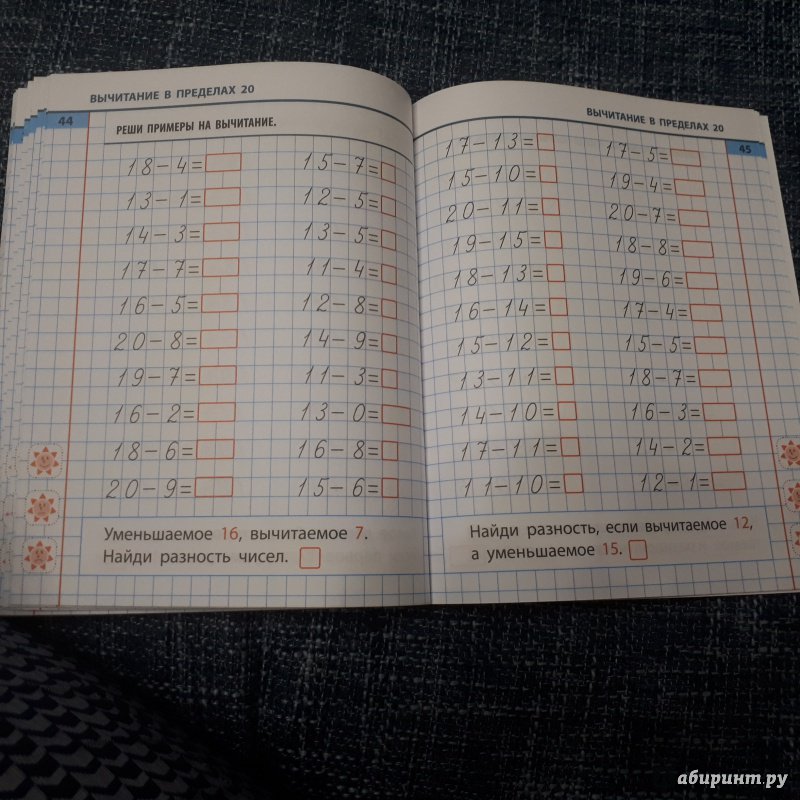 ВЫЧИТАНИЕ В ПРЕДЕЛАХ 20
44
РЕШИ ПРИМЕРЫ НА ВЫЧИТАНИЕ.
18-4= 15-7=
13-1= 12-5=
14-3= 13-5=
17-7= 11-4=
16-5= 12-8=
20-8= 14-9=
19-7= 11-3=
16-2= 13-0=
18-6= 16-8=
20-9= 15-6=
Уменьшаемое 16, вычитаемое 7.
Найди разность чисел.
ВЫЧИТАНИЕ В ПРЕДЕЛАХ 20
45
17-13= 17-5=
15-10= 19-4=
20-11= 20-7=
19-15= 18-8=
18-13= 19-6=
16-14= 17-4=
15-12= 15-5=
13-11= 18-7=
14-10= 16-3=
17-11= 14-2=
11-10= 12-1=
Найди разность, если вычитаемое 12,
а уменьшаемое 15.
абиринт.ру